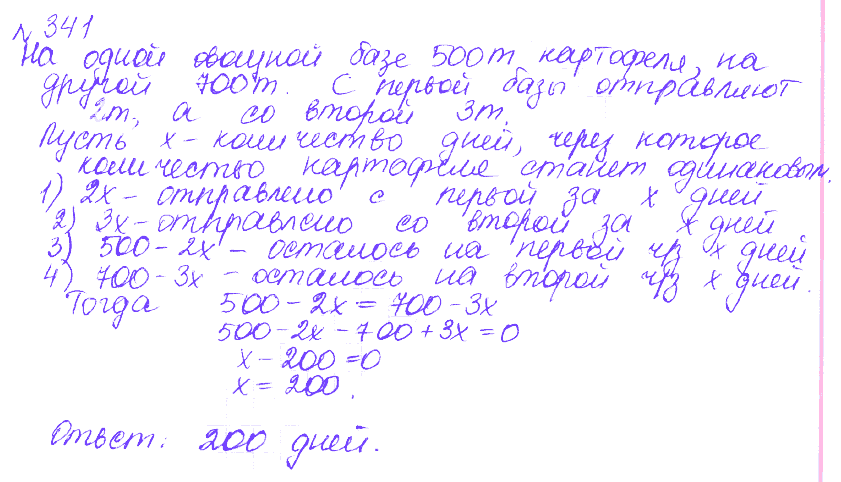 № 341
На одной овощной базе 500т картофеля, на
другой 700т. С первой базы отправляют
2т, а со второй 3т.
Пусть х - количество дней, через которое
количество картофеля станет одинаковым.
1) 2х - отправлено с первой за х дней
2) 3х - отправлено со второй за х дней
3) 500 - 2х - осталось на первой ч/з х дней
4) 700 - 3х - осталось на второй ч/з х дней.
Тогда 500 - 2х = 700 - 3х
500 - 2х - 700 + 3х = 0
х - 200 = 0
х = 200.
Ответ: 200 дней.